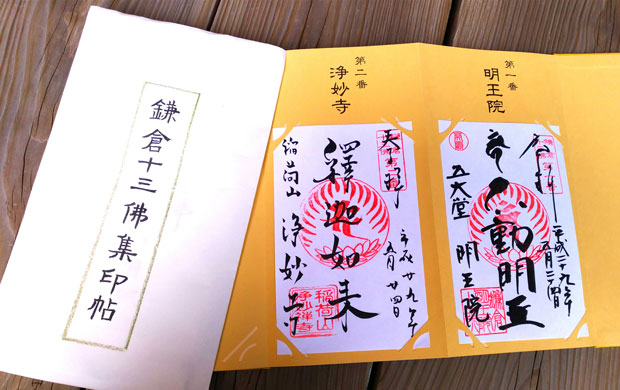 鎌倉十三佛集印帖
第一番
明王院
奉拝
平成二十九年
五月二十四日
不動明王
五大堂 明王院
第二番
浄妙寺
釋迦如来
平成廿九年
五月廿四日
稲荷山 浄妙寺
稲荷山
浄妙禅寺